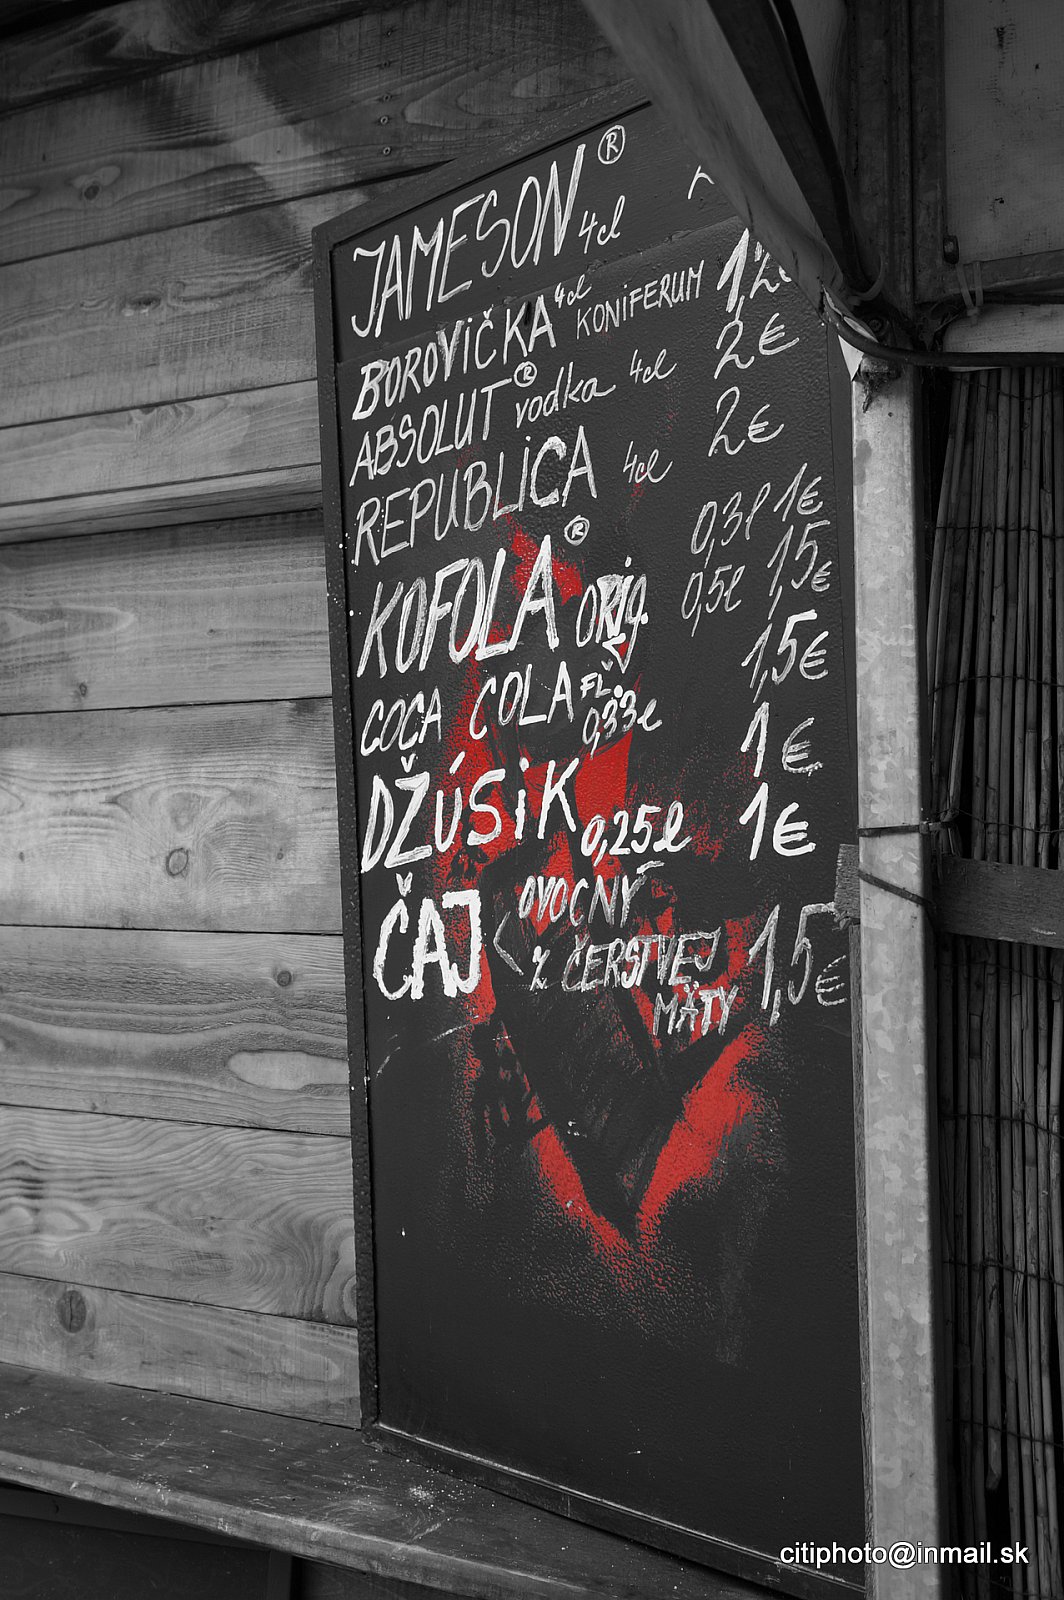 JAMESON ® 4cl
BOROVIČKA 4cl KONIFERUM 1,2
ABSOLUT ® vodka 4cl 2€
REPUBLICA 4cl 2€
KOFOLA ® ORIG. 0,3l 1€
0,5l 1,5€
COCA COLA FL. 0,33l 1,5€
DŽÚSIK 0,25l 1€
1€
ČAJ < OVOCNÝ
Z ČERSTVEJ
MÄTY 1,5€
citiphoto@inmail.sk